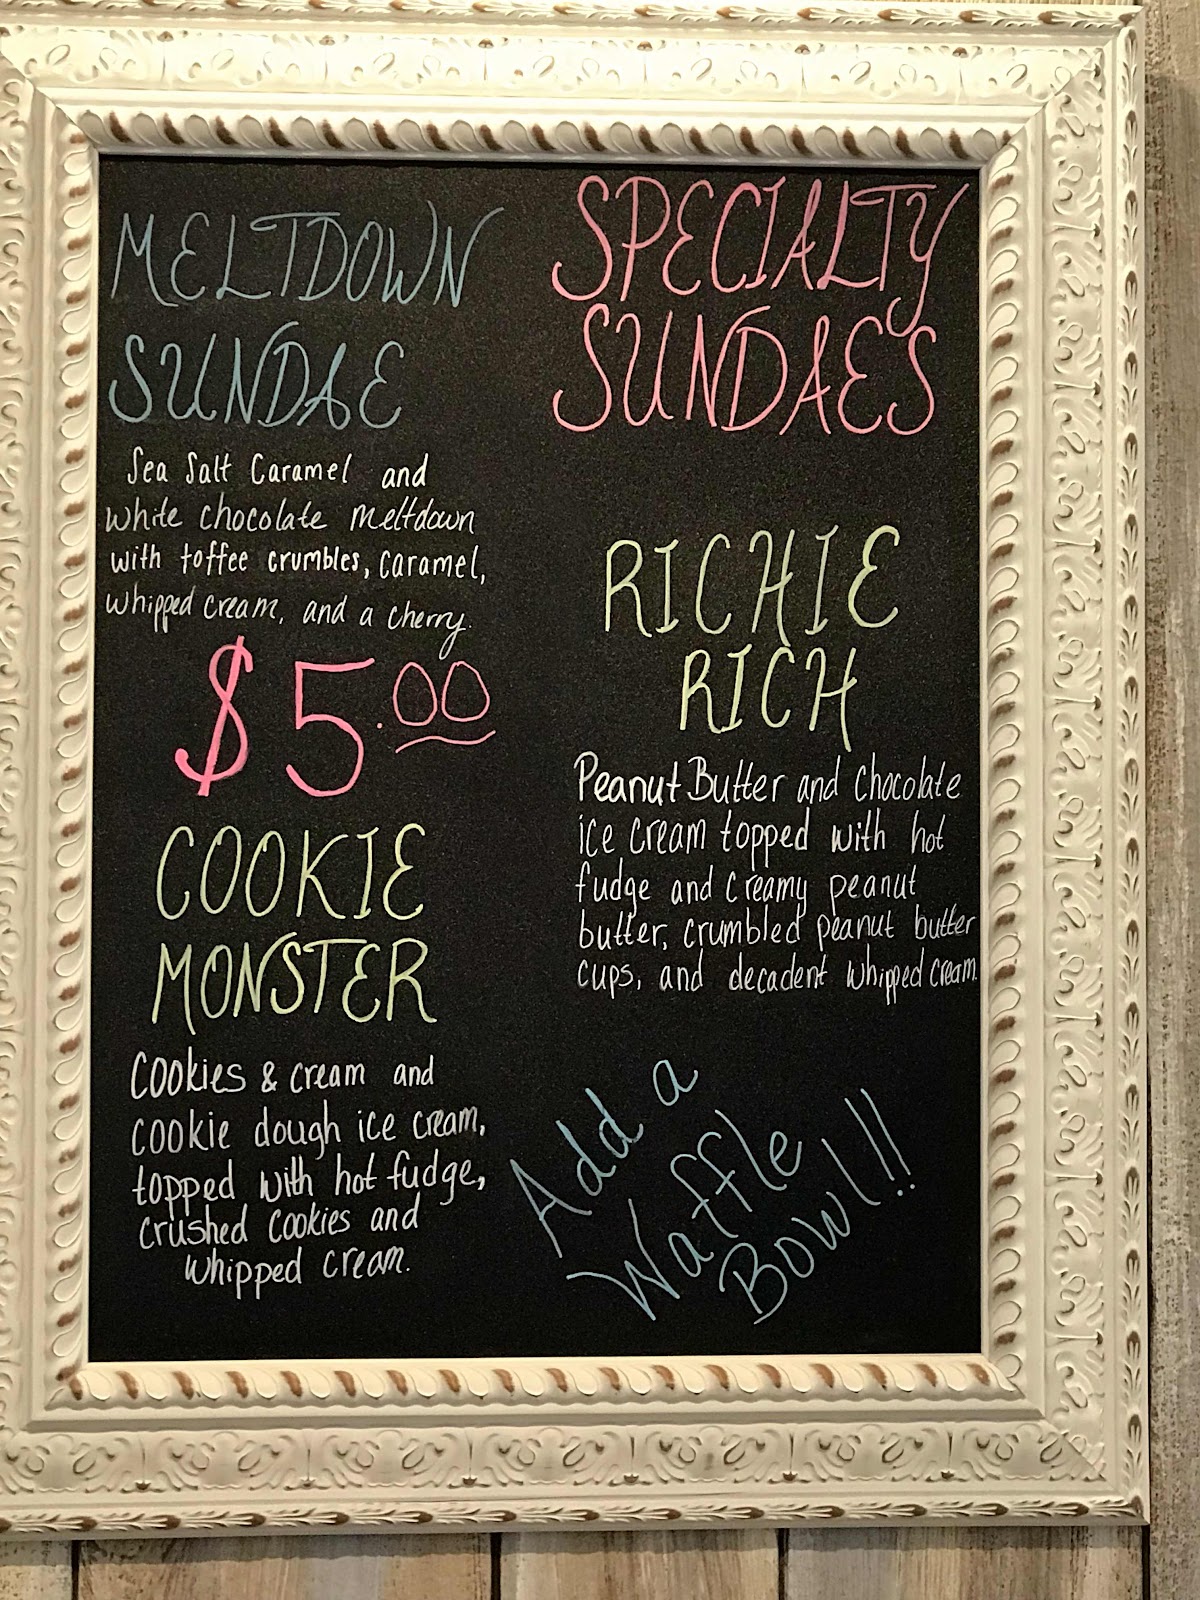 MELTDOWN
SUNDAE
Sea Salt Caramel and
white chocolate meltdown
with toffee crumbles, caramel,
whipped cream, and a cherry.
$5.00
COOKIE
MONSTER
Cookies & cream and
cookie dough ice cream,
topped with hot fudge,
crushed cookies and
whipped cream.
SPECIALTY
SUNDAES
RICHIE
RICH
Peanut Butter and Chocolate
ice cream topped with hot
fudge and creamy peanut
butter, crumbled peanut butter
cups, and decadent whipped cream.
Add a
Waffle
Bowl!!